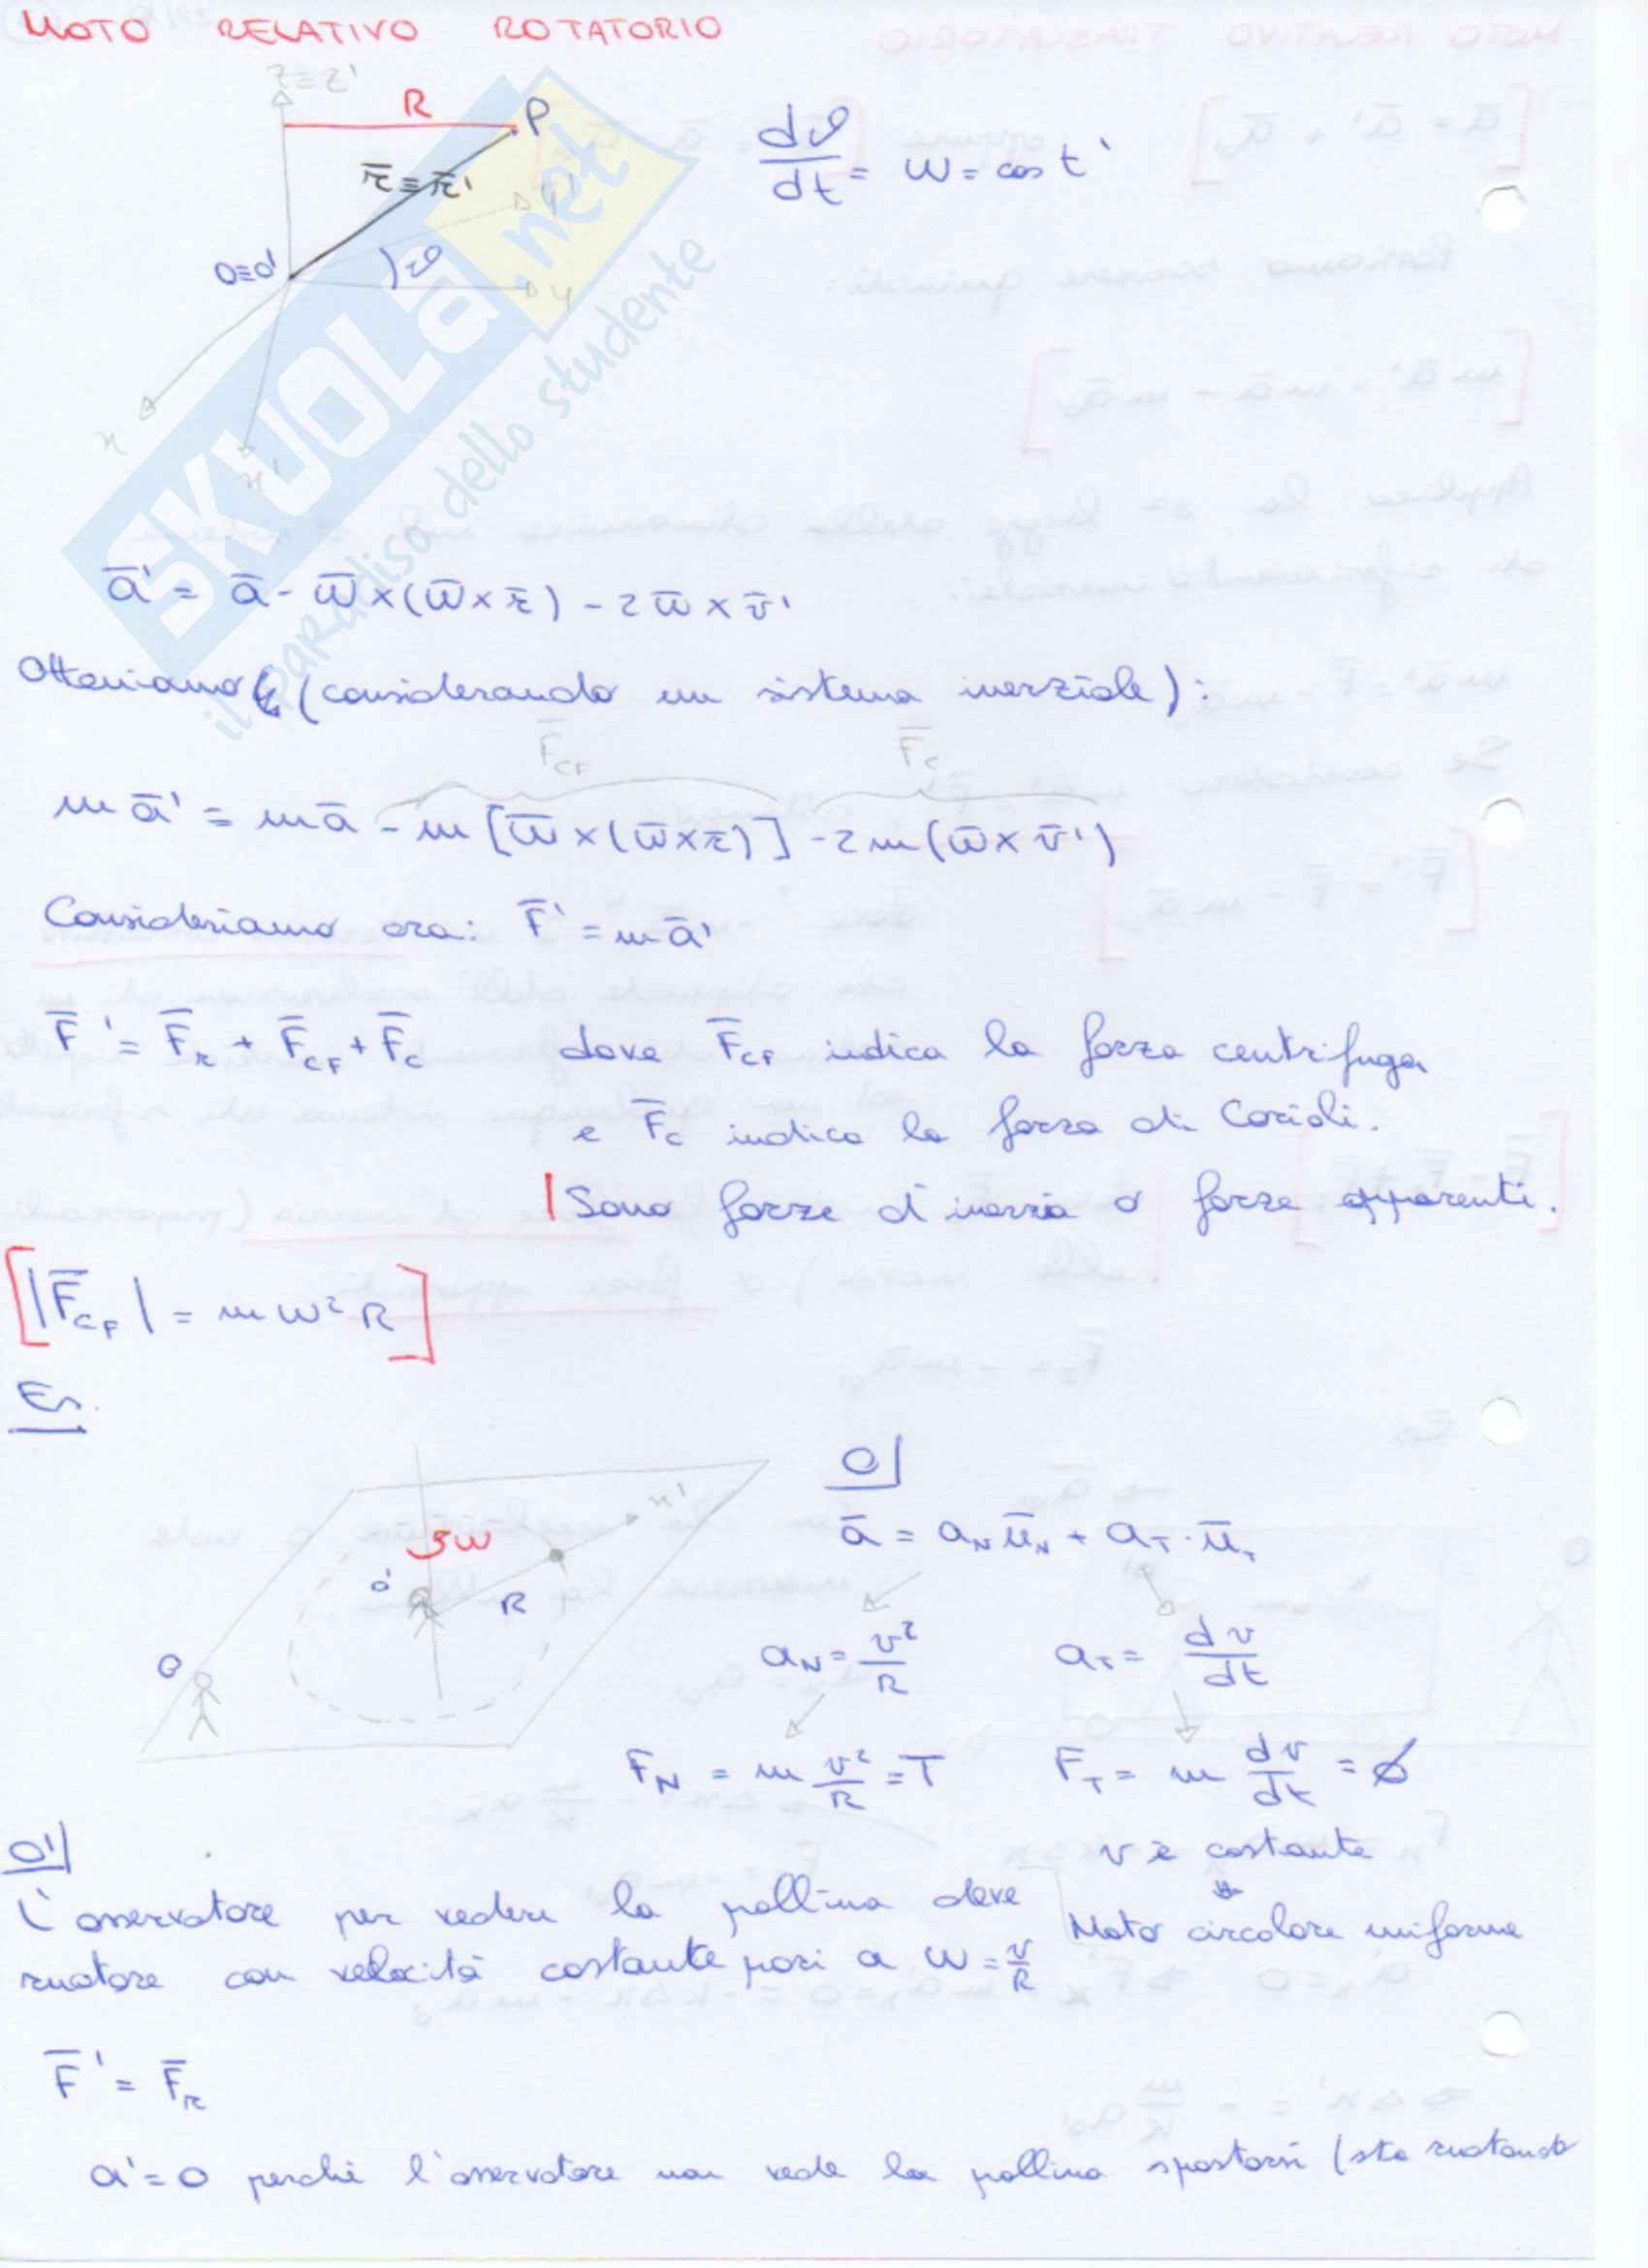 MOTO RELATIVO ROTATORIO
z≡z'
R
P
r̄≡r̄'
y'
O≡O'
ϑ
y
x
x'
dϑ/dt = ω = cost'
SKUOLA.net
il paradiso dello studente
ā' = ā - ω̄×(ω̄×r̄) - 2ω̄×v̄'
Otteniamo (considerando un sistema inerziale):
F̄CF
F̄C
mā' = mā - m[ω̄×(ω̄×r̄)] - 2m(ω̄×v̄')
Consideriamo ora: F̄' = mā'
F̄' = F̄R + F̄CF + F̄C dove F̄CF indica la forza centrifuga
e F̄C indica la forza di Corioli.
Sono forze d'inerzia o forze apparenti.
[|F̄CF| = mω²R]
Es.
ω
x'
O'
R
O
O|
ā = aN ūN + aT · ūT
aN = v²/R
aT = dv/dt
FN = m v²/R = T
FT = m dv/dt = ∅
v è costante
Moto circolare uniforme
O'|
L'osservatore per vedere la pallina deve
ruotare con velocità costante pari a ω = v/R
F̄' = F̄R
a' = 0 perchè l'osservatore non vede la pallina spostarsi (sta ruotando